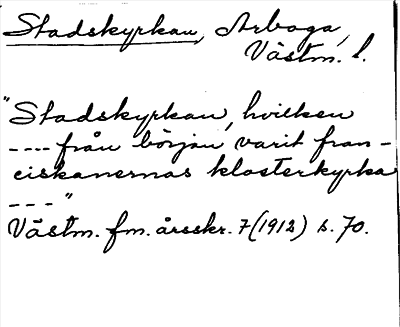 Stadskyrkan, Arboga,
Västm. l.
"Stadskyrkan, hvilken
---- från början varit fran-
ciskanernas klosterkyrka
---"
Västm. fm. årsskr. 7 (1912) s. 70.